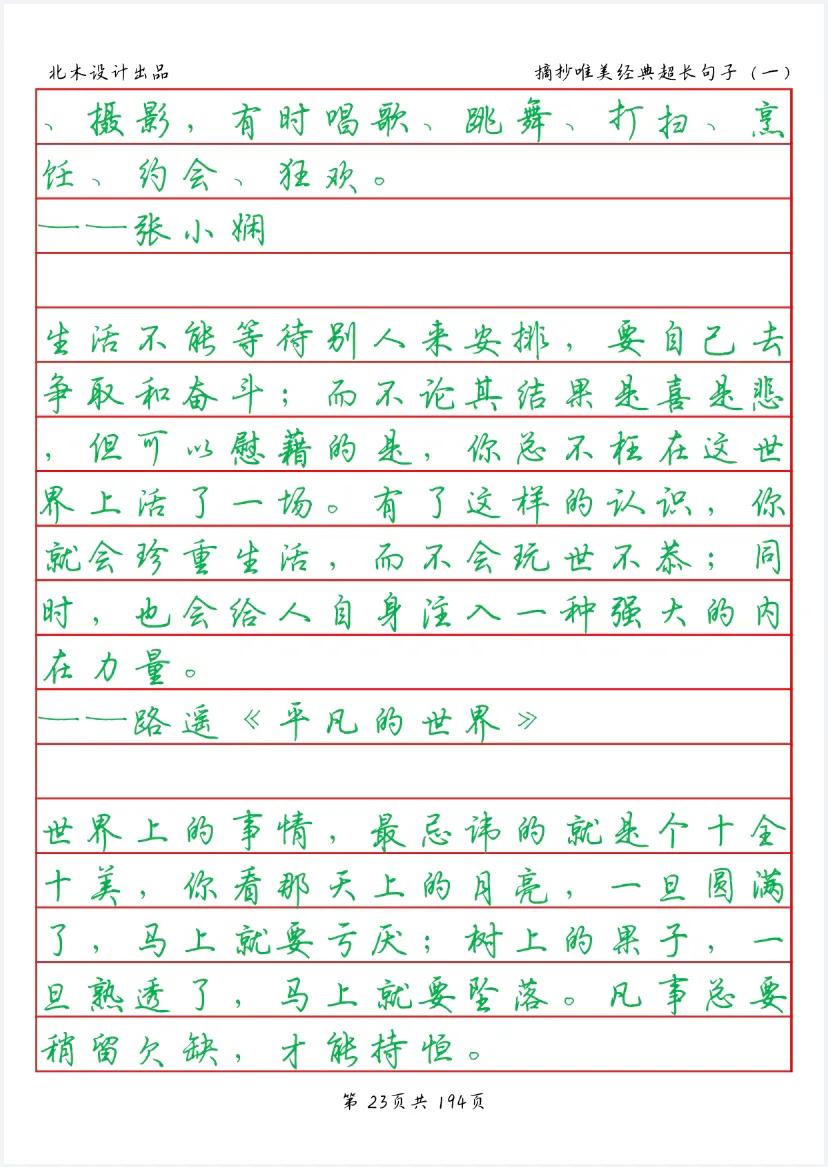 北木设计出品
摘抄唯美经典超长句子（一）
、摄影，有时唱歌、跳舞、打扫、烹
饪、约会、狂欢。
——张小娴
生活不能等待别人来安排，要自己去
争取和奋斗；而不论其结果是喜是悲
，但可以慰藉的是，你总不枉在这世
界上活了一场。有了这样的认识，你
就会珍重生活，而不会玩世不恭；同
时，也会给人自身注入一种强大的内
在力量。
——路遥《平凡的世界》
世界上的事情，最忌讳的就是个十全
十美，你看那天上的月亮，一旦圆满
了，马上就要亏厌；树上的果子，一
旦熟透了，马上就要坠落。凡事总要
稍留欠缺，才能持恒。
第 23页共 194页